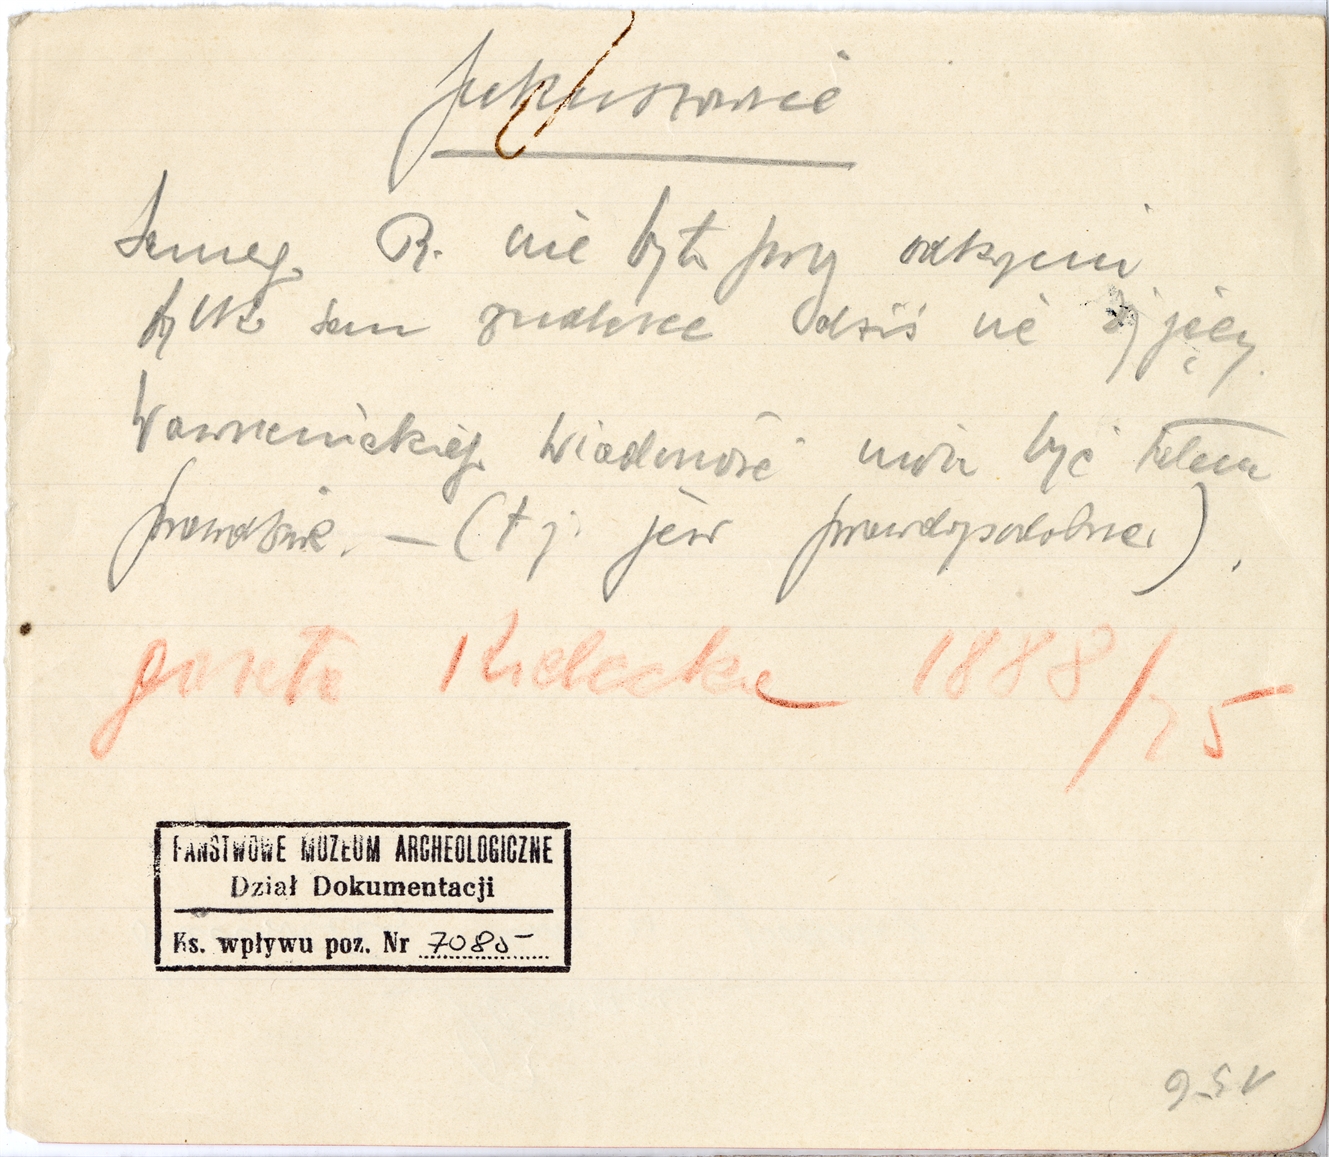 Jakuszowice
Samego R. nie było przy odkryciu
tylko sam znalazca dziś nie żyjący.
Wawrzenieckiego wiadomość może być
prawdziwa. — (t j. jest prawdopodobne.) .
gazeta Kielecka 1888/75
PAŃSTWOWE MUZEUM ARCHEOLOGICZNE
Dział Dokumentacji
Ks. wpływu poz. Nr 7085